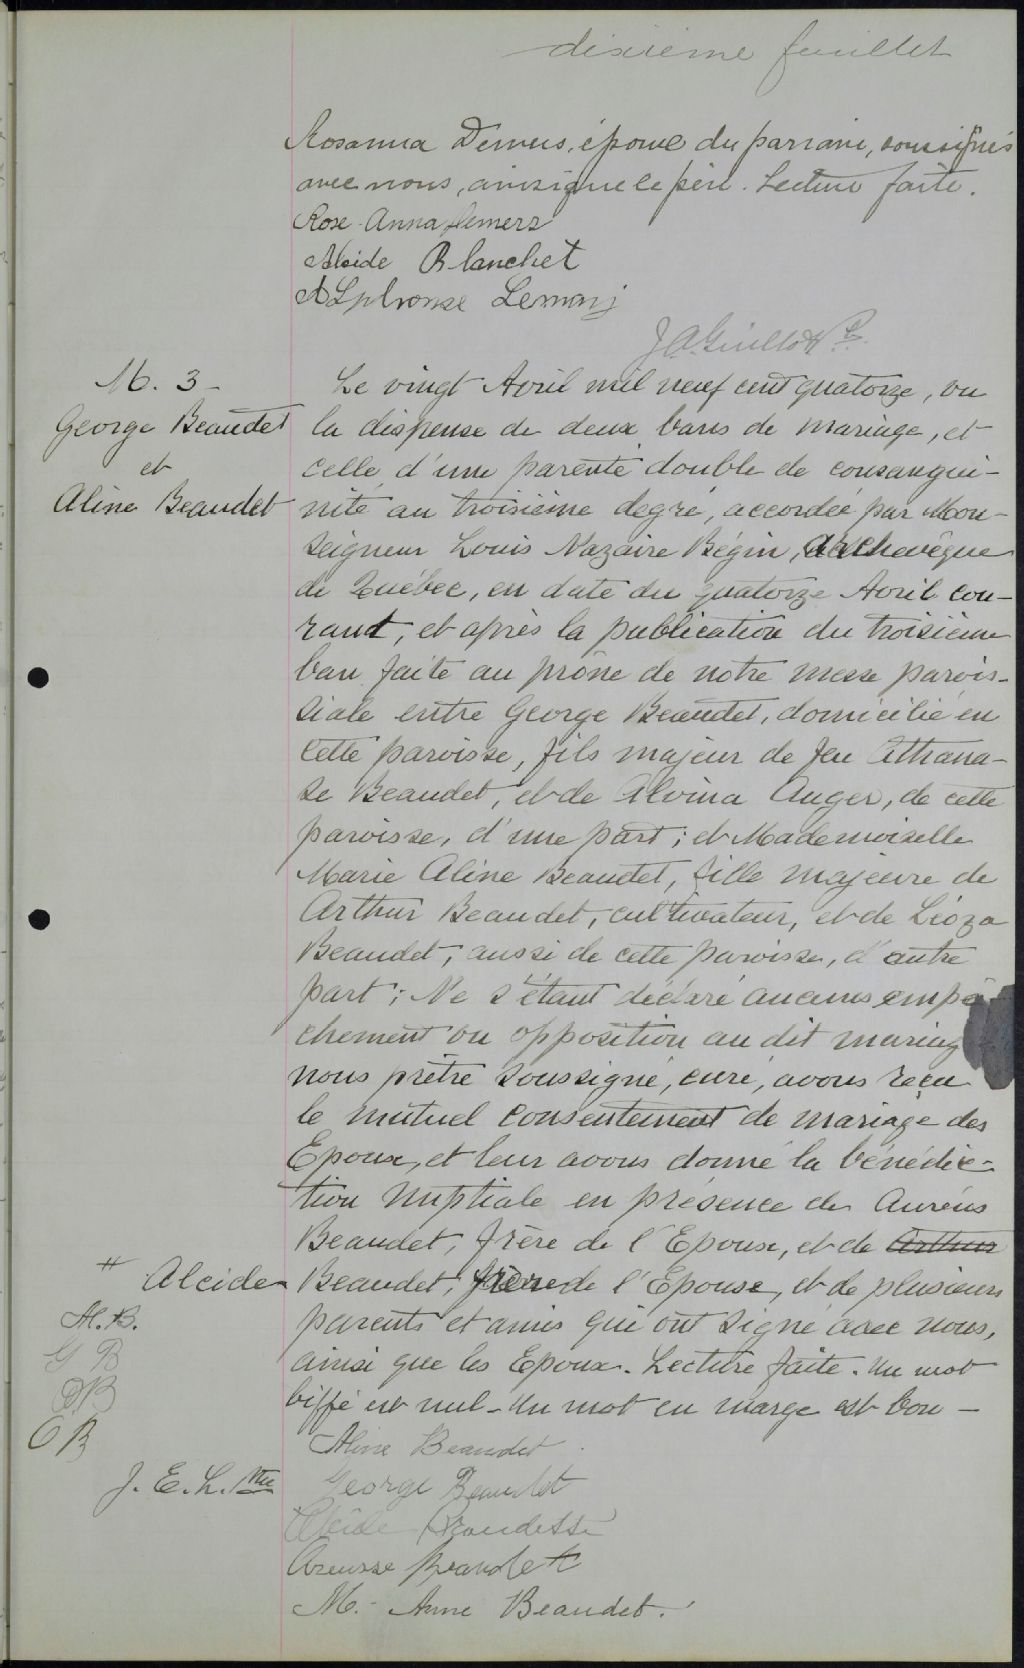 dixième feuillet
Rosanna Demers, épouse du parrain, soussignés
avec nous, ainsi que le père. Lecture faite.
Rose-Anna Demers
Alcide Blanchet
ALphonse Lemay
J.A. Ptre
M. 3 -
George Beaudet
et
Aline Beaudet
Le vingt Avril mil neuf cent quatorze, vu
la dispense de deux bans de mariage, et
celle d'une parenté double de consangui-
nité au troisième degré, accordée par Mon-
seigneur Louis Nazaire Bégin, archevêque
de Québec, en date du quatorze Avril cou-
rant, et après la publication du troisième
ban faite au prône de notre messe parois-
siale entre George Beaudet, domicilié en
cette paroisse, fils majeur de feu Athana-
se Beaudet, et de Alvina Auger, de cette
paroisse, d'une part; et Mademoiselle
Marie Aline Beaudet, fille majeure de
Arthur Beaudet, cultivateur, et de Léoza
Beaudet, aussi de cette paroisse, d'autre
part; Ne s'étant déclaré aucuns empê-
chement ou opposition au dit mariag
nous prêtre soussigné, curé, avons reçu
le mutuel consentement de mariage des
Epoux, et leur avons donné la bénédic-
tion nuptiale en présence de Auréus
Beaudet, frère de l'Epoux, et de Arthur
# Alcide Beaudet, frère de l'Epouse, et de plusieurs
parents et amis qui ont signé avec nous,
ainsi que les Epoux. Lecture faite. Un mot
biffé est nul - Un mot en marge est bon -
A.B.
G B
AB
O B
J. E. L. Ptre
Aline Beaudet
George Beaudet
Alcide Beaudette
Beaudet
M. Anne Beaudet.